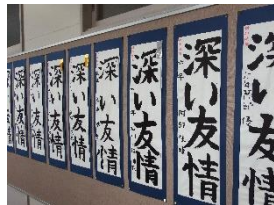 深い友情
深い友情
深い友情
深い友情
深い友情
深い友情
深い友情
深い友情